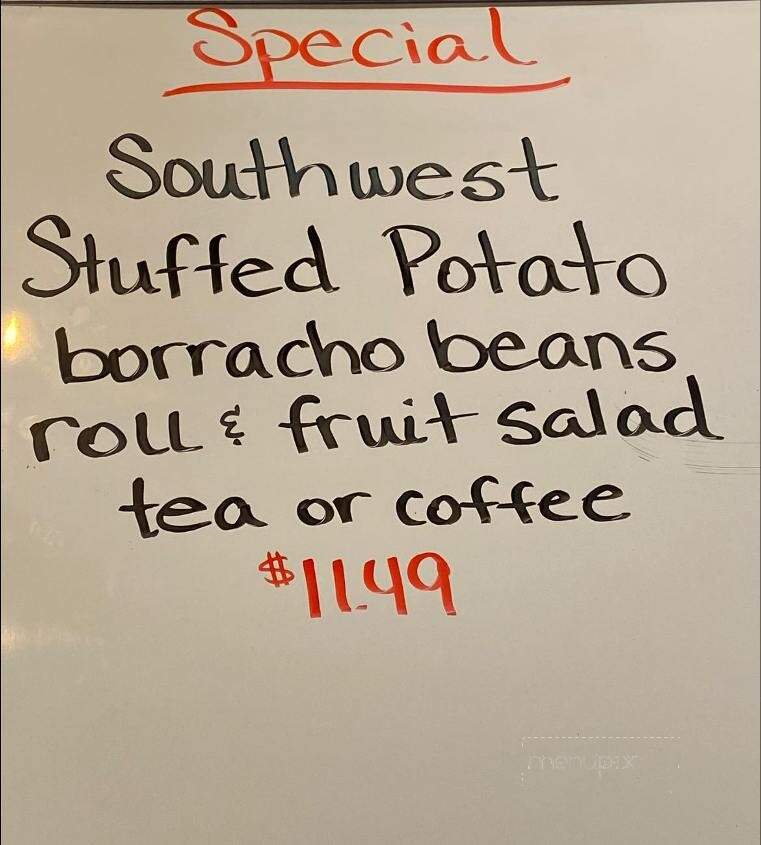 Special
Southwest
Stuffed Potato
borracho beans
roll & fruit salad
tea or coffee
$11.49
menupix